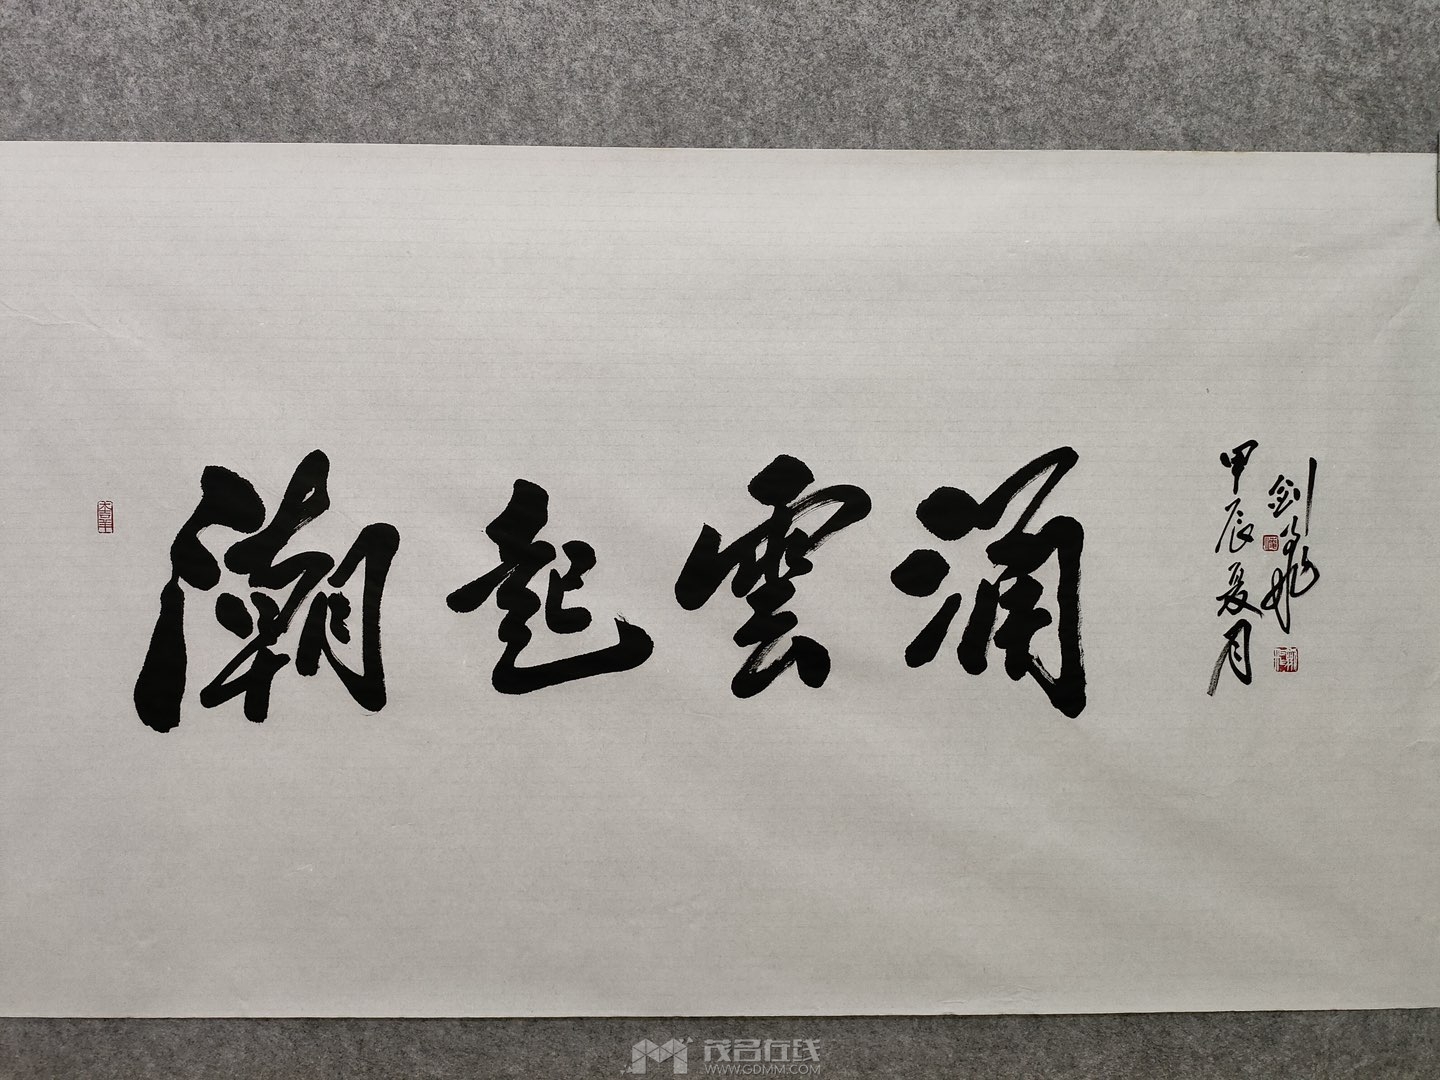 潮起雲涌
甲辰夏月
剑
茂名在线
WWW.GDMM.COM